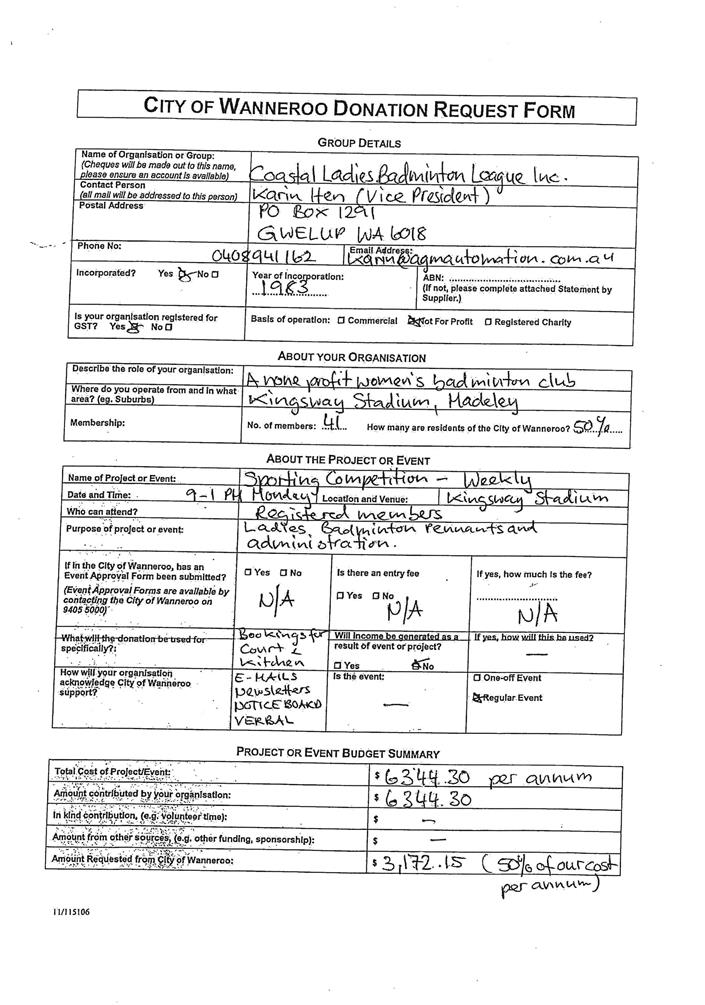 CITY OF WANNEROO DONATION REQUEST FORM
GROUP DETAILS
Name of Organisation or Group:
(Cheques will be made out to this name,
please ensure an account is available)
Coastal Ladies Badminton League Inc.
Contact Person
(all mail will be addressed to this person)
Karin Hen (Vice President)
Postal Address
PO BOX 1291
GWELUP WA 6018
Phone No:
0408941162
Email Address:
karin@agmautomation.com.au
Incorporated? Yes ☒ No ☐
Year of Incorporation:
1983
ABN: ....................................
(If not, please complete attached Statement by
Supplier.)
Is your organisation registered for
GST? Yes ☒ No ☐
Basis of operation: ☐ Commercial ☒ Not For Profit ☐ Registered Charity
ABOUT YOUR ORGANISATION
Describe the role of your organisation:
A none profit women's badminton club
Where do you operate from and in what
area? (eg. Suburbs)
Kingsway Stadium, Madeley
Membership:
No. of members: 41
How many are residents of the City of Wanneroo? 50%
ABOUT THE PROJECT OR EVENT
Name of Project or Event:
Sporting Competition - Weekly
Date and Time:
9-1 PM Monday
Location and Venue:
Kingsway Stadium
Who can attend?
Registered members
Purpose of project or event:
Ladies Badminton Pennants and
administration.
If in the City of Wanneroo, has an
Event Approval Form been submitted?
(Event Approval Forms are available by
contacting the City of Wanneroo on
9405 5000)
☐ Yes ☐ No
N/A
Is there an entry fee
☐ Yes ☐ No
N/A
If yes, how much is the fee?
..........................
N/A
What will the donation be used for
specifically?:
Bookings for
Court &
Kitchen
Will Income be generated as a
result of event or project?
☐ Yes ☒ No
If yes, how will this be used?
—
How will your organisation
acknowledge City of Wanneroo
support?
E-MAILS
Newsletters
NOTICE BOARD
VERBAL
Is the event:
—
☐ One-off Event
☒ Regular Event
PROJECT OR EVENT BUDGET SUMMARY
Total Cost of Project/Event:
$ 6344.30 per annum
Amount contributed by your organisation:
$ 6344.30
In kind contribution, (e.g. volunteer time):
$ —
Amount from other sources, (e.g. other funding, sponsorship):
$ —
Amount Requested from City of Wanneroo:
$ 3,172.15 (50% of our cost
per annum)
11/115106